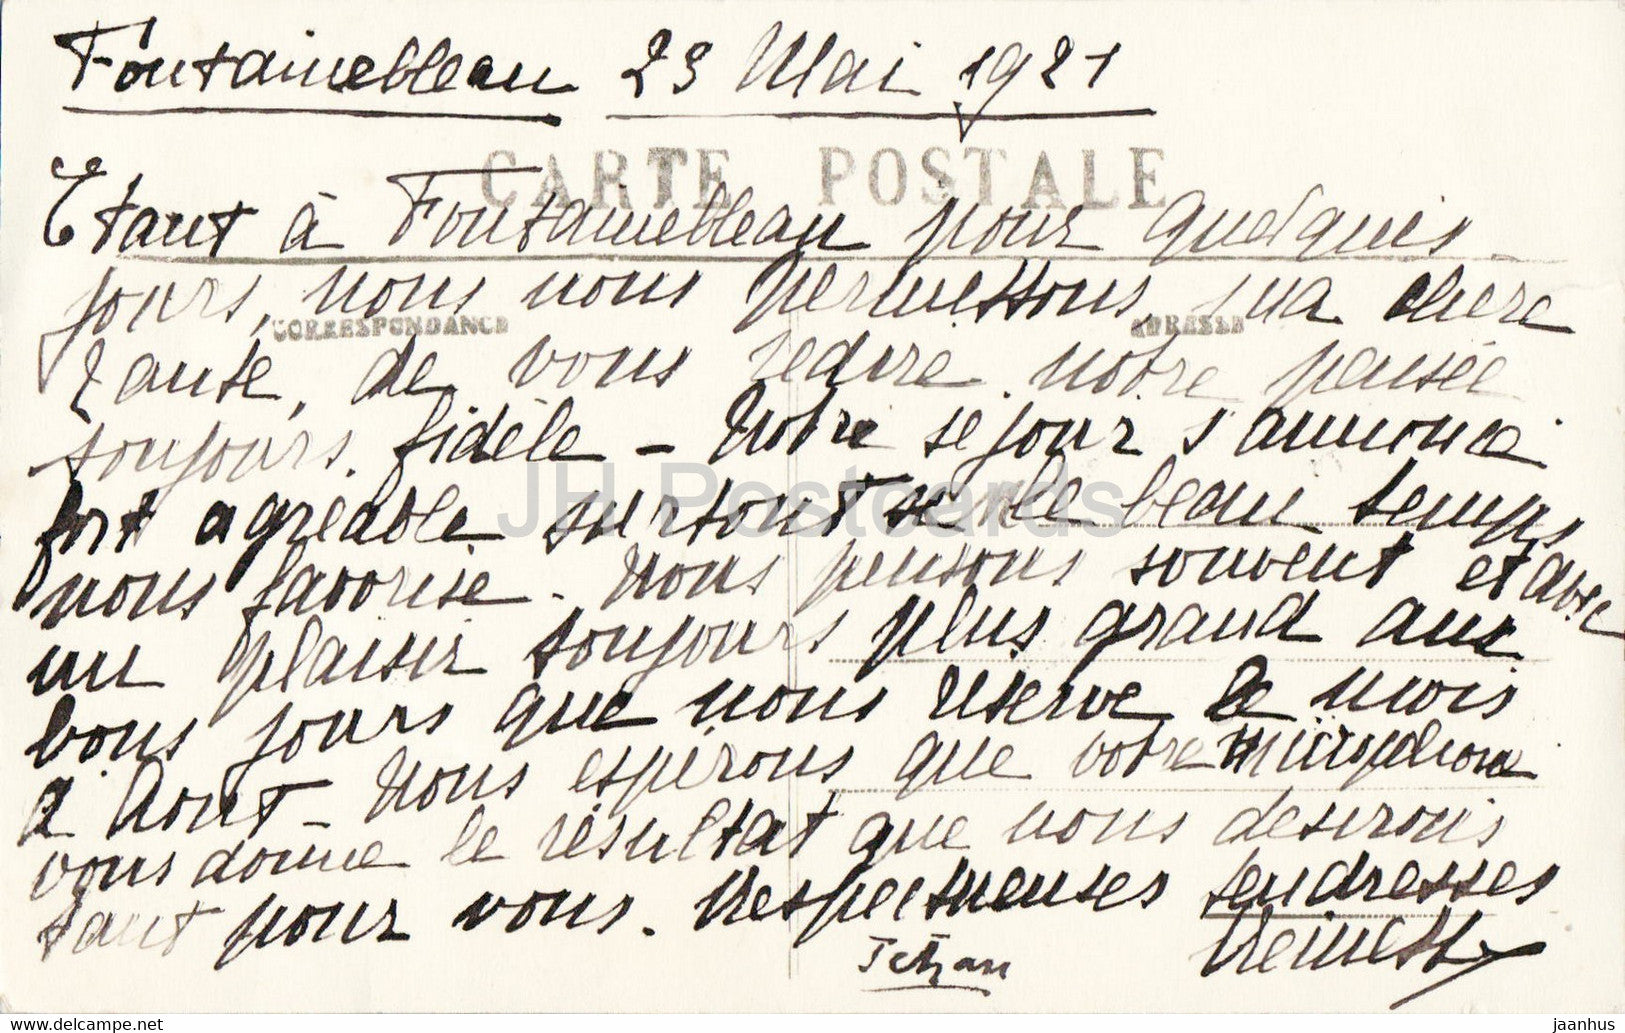 Fontainebleau 23 Mai 1921
CARTE POSTALE
Etant à Fontainebleau pour quelques
jours, nous nous permettons, ma chère
CORRESPONDANCE ADRESSE
Tante, de vous redire notre pensée
toujours fidèle - Notre séjour s'annonce
fort agréable surtout si le beau temps
nous favorise. Nous pensons souvent et avec
un plaisir toujours plus grand aux
bons jours que nous réserve le mois
d'Aout - Nous espérons que votre microphone
vous donne le résultat que nous désirons
tant pour vous. Respectueuses tendresses
JH Postcards
jaanhus
HIP Postcard.com